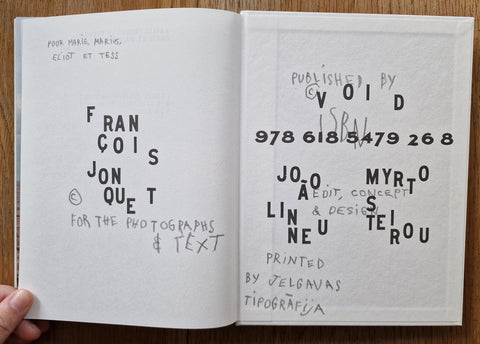 POUR MARIE, MARIUS,
ELIOT ET TESS
FRAN
ÇOIS
JON
QUET
©
FOR THE PHOTOGRAPHS
& TEXT
PUBLISHED BY
© VOID
ISBN
978 618 5479 26 8
JOÃO MYRTO
EDIT, CONCEPT
& DESIGN
LIN STEI
NEU ROU
PRINTED
BY JELGAVAS
TIPOGRĀFIJA